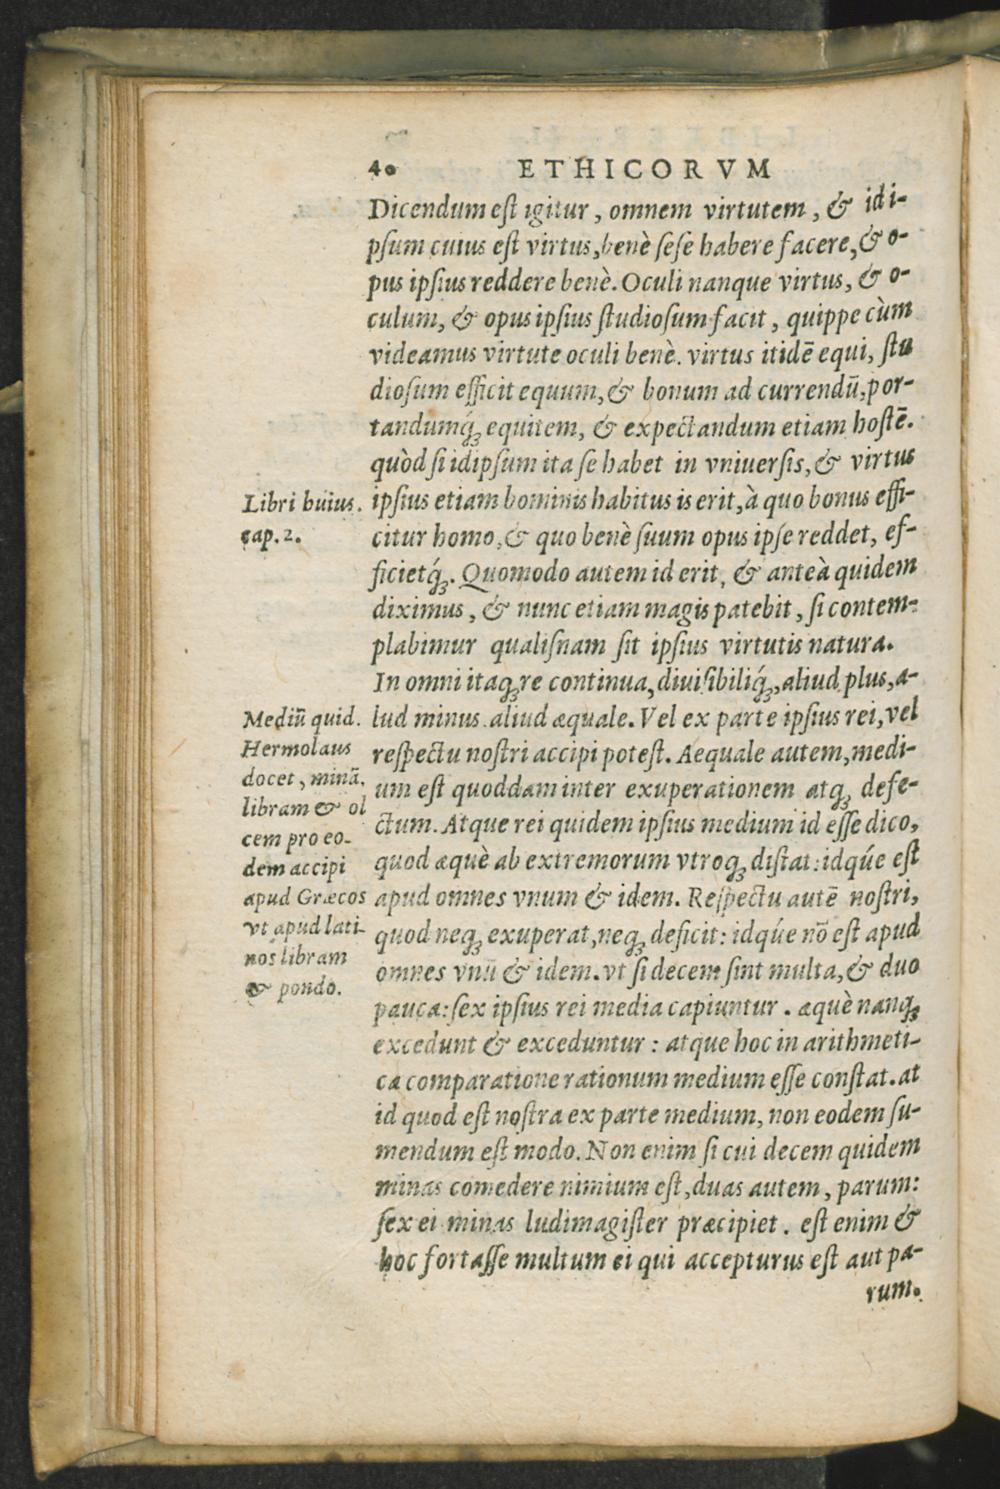 40 ETHICORVM
Dicendum est igitur, omnem virtutem, & id i-
psum cuius est virtus, benè sese habere facere, & o-
pus ipsius reddere benè. Oculi nanque virtus, & o-
culum, & opus ipsius studiosum facit, quippe cùm
videamus virtute oculi benè. virtus itidē equi, stu
diosum efficit equum, & bonum ad currendū, por-
tandumq́; equitem, & expectandum etiam hostē.
quòd si idipsum ita se habet in vniuersis, & virtus
ipsius etiam hominis habitus is erit, à quo bonus effi-
citur homo, & quo benè suum opus ipse reddet, ef-
ficietq́;. Quomodo autem id erit, & anteà quidem
diximus, & nunc etiam magis patebit, si contem-
plabimur qualisnam sit ipsius virtutis natura.
In omni itaq; re continua, diuisibiliq́;, aliud plus, a-
lud minus. aliud æquale. Vel ex parte ipsius rei, vel
respectu nostri accipi potest. Aequale autem, medi-
um est quoddam inter exuperationem atq; defe-
ctum. Atque rei quidem ipsius medium id esse dico,
quod æquè ab extremorum vtroq; distat: idqúe est
apud omnes vnum & idem. Respectu autē nostri,
quod neq; exuperat, neq; deficit: idqúe nō est apud
omnes vnū & idem. vt si decem sint multa, & duo
pauca: sex ipsius rei media capiuntur. æquè nanq;
excedunt & exceduntur: atque hoc in arithmeti-
ca comparatione rationum medium esse constat. at
id quod est nostra ex parte medium, non eodem su-
mendum est modo. Non enim si cui decem quidem
minas comedere nimium est, duas autem, parum:
sex ei minas ludimagister præcipiet. est enim &
hoc fortasse multum ei qui accepturus est aut pa-
rum.
Libri huius.
cap. 2.
Mediū quid.
Hermolaus
docet, minā,
libram & ol
cem pro eo-
dem accipi
apud Græcos
vt apud lati-
nos libram
& pondo.